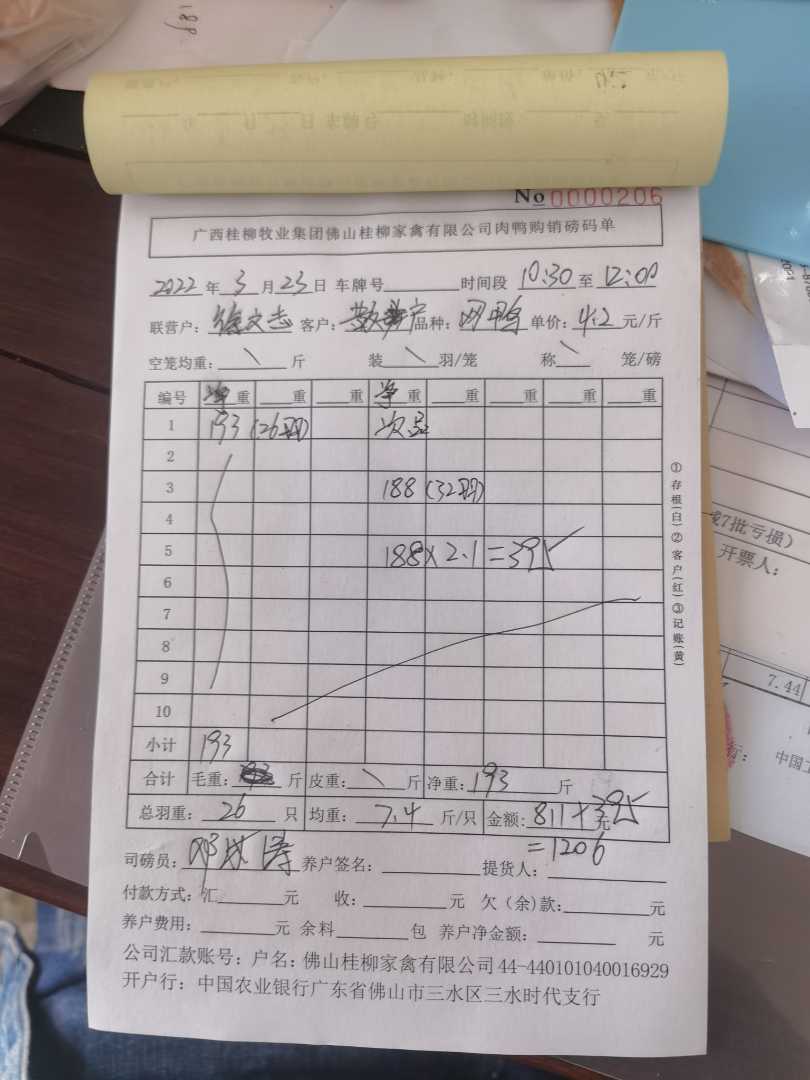 188
No 0000206
广西桂柳牧业集团佛山桂柳家禽有限公司肉鸭购销磅码单
2022 年 3 月 23 日 车牌号 时间段 10:30 至 12:00
联营户: 徐文志 客户: 散户 品种: 鸭 单价: 4.2 元/斤
空笼均重: \ 斤 装 \ 羽/笼 称 \ 笼/磅
编号 净重 重 重 净重 重 重 重 重
1 193 (26羽) 次品
2
3 188 (32羽)
4
5 188 x 2.1 = 395
6
7
8
9
10
小计 193
合计 毛重: 斤 皮重: \ 斤 净重: 193 斤
总羽重: 26 只 均重: 7.4 斤/只 金额: 811+395 元
=1206
司磅员: 邓 涛 养户签名: 提货人:
付款方式: 汇 元 收: 元 欠(余)款: 元
养户费用: 元 余料 包 养户净金额: 元
公司汇款账号: 户名: 佛山桂柳家禽有限公司 44-440101040016929
开户行: 中国农业银行广东省佛山市三水区三水时代支行
①存根(白)②客户(红)③记账(黄)
7批亏损)
开票人:
7.44
行: 中国